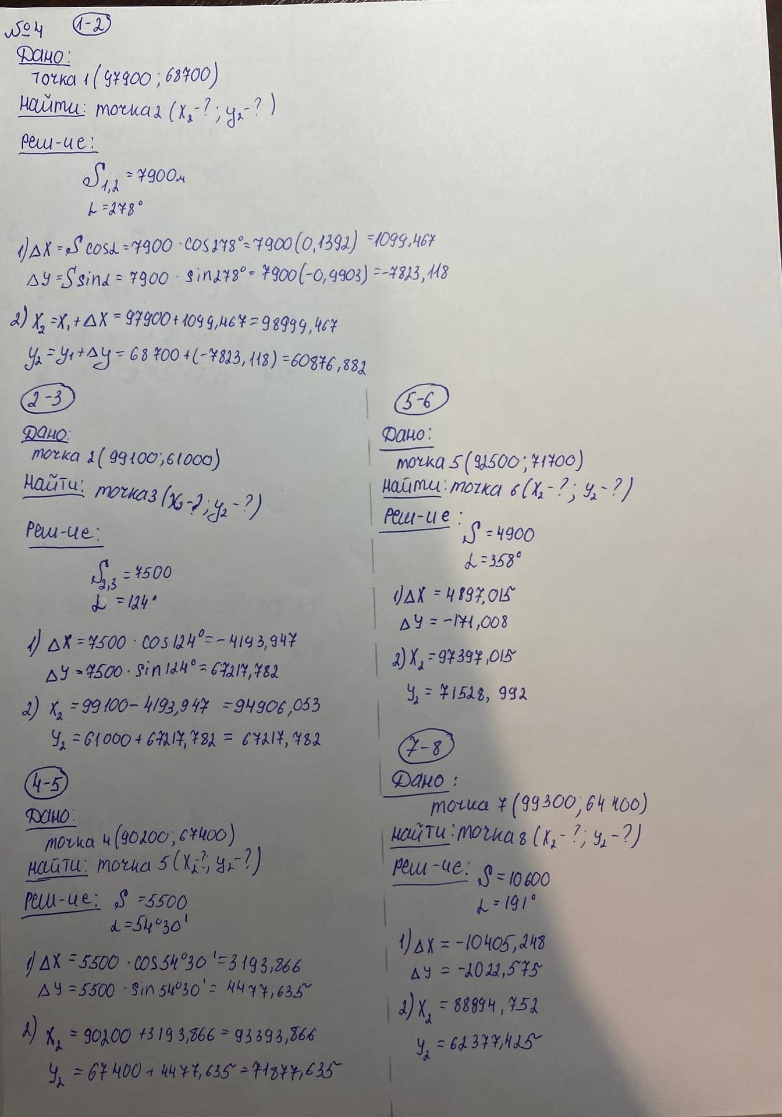 №4 1-2
Дано:
точка 1 (97900; 68700)
Найти: точка 2 (X₂-?; y₂-?)
Реш-ие:
S₁,₂ = 7900м
L = 278°
1) ΔX = S cosL = 7900 · cos278° = 7900(0,1392) = 1099,467
ΔY = S sinL = 7900 · sin278° = 7900(-0,9903) = -7823,118
2) X₂ = X₁ + ΔX = 97900 + 1099,467 = 98999,467
y₂ = y₁ + Δy = 68700 + (-7823,118) = 60876,882
2-3
Дано:
точка 2 (99100; 61000)
Найти: точка 3 (X₂-?; y₂-?)
Реш-ие:
S₂,₃ = 7500
L = 124°
1) ΔX = 7500 · cos124° = -4193,947
ΔY = 7500 · sin124° = 67217,782
2) X₂ = 99100 - 4193,947 = 94906,053
Y₂ = 61000 + 67217,782 = 67217,782
4-5
Дано:
точка 4 (90200; 67400)
найти: точка 5 (X₂-?; y₂-?)
Реш-ие: S = 5500
L = 54°30'
1) ΔX = 5500 · cos54°30' = 3193,866
ΔY = 5500 · sin54°30' = 4477,635
2) X₂ = 90200 + 3193,866 = 93393,866
Y₂ = 67400 + 4477,635 = 71877,635
5-6
Дано:
точка 5 (92500; 71700)
найти: точка 6 (X₂-?; y₂-?)
Реш-ие:
S = 4900
L = 358°
1) ΔX = 4897,015
ΔY = -171,008
2) X₂ = 97397,015
Y₂ = 71528,992
7-8
Дано:
точка 7 (99300; 64400)
найти: точка 8 (X₂-?; y₂-?)
Реш-ие: S = 10600
L = 191°
1) ΔX = -10405,248
ΔY = -2022,575
2) X₂ = 88894,752
y₂ = 62377,425